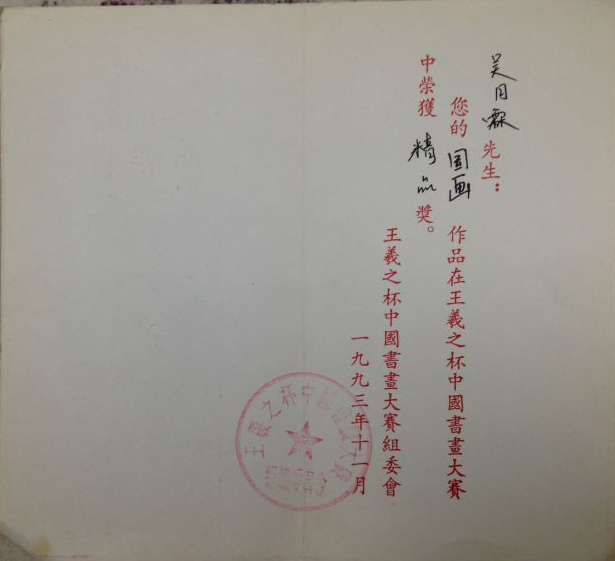 吴月霖先生：
您的国画作品在王羲之杯中國書畫大賽
中荣獲精品奬。
王羲之杯中國書畫大賽組委會
一九九三年十一月
王羲之杯中國書畫大賽